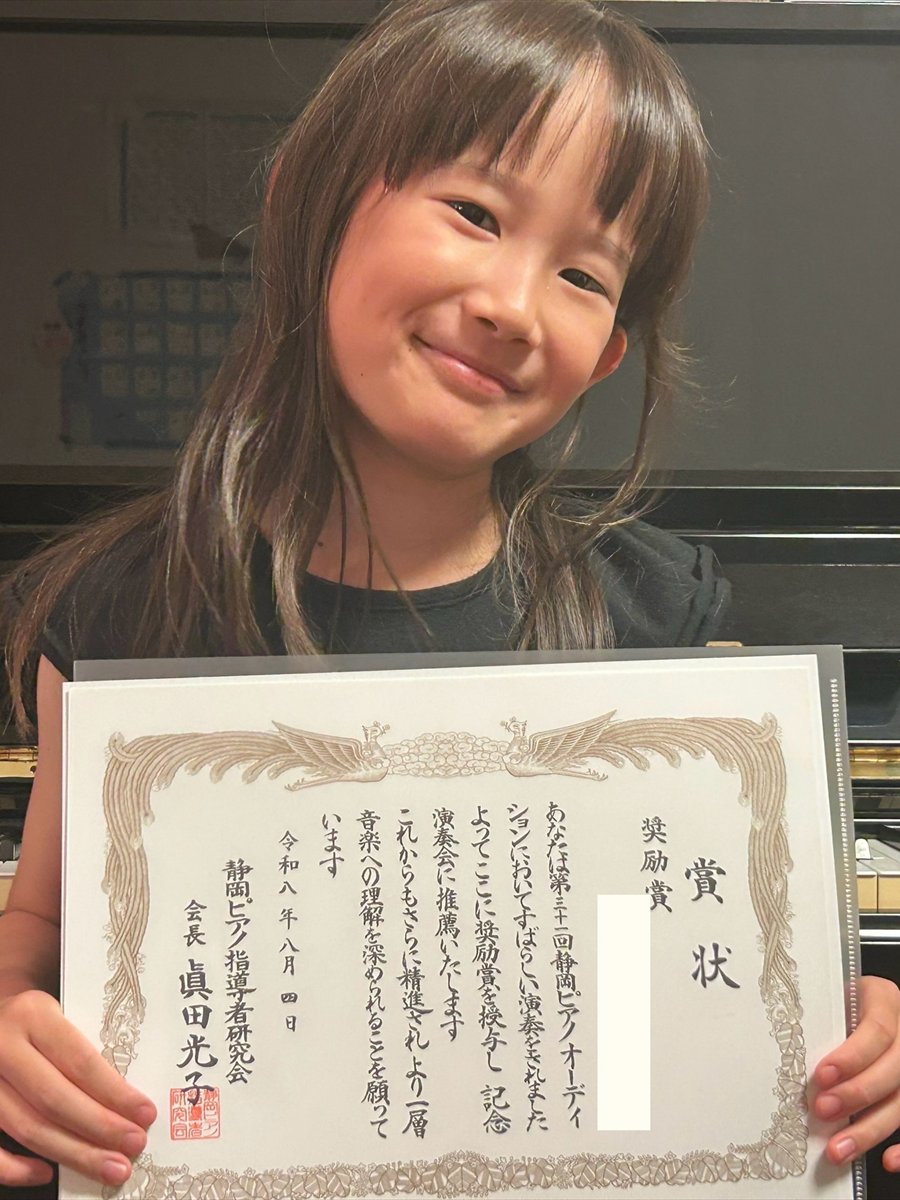 賞状
奨励賞
あなたは第三十一回静岡ピアノオーディ
ションにおいてすばらしい演奏をされました
よってここに奨励賞を授与し 記念
演奏会に推薦いたします
これからもさらに精進され より一層
音楽への理解を深められることを願って
います
令和八年八月 四日
静岡ピアノ指導者研究会
会長 眞田光子